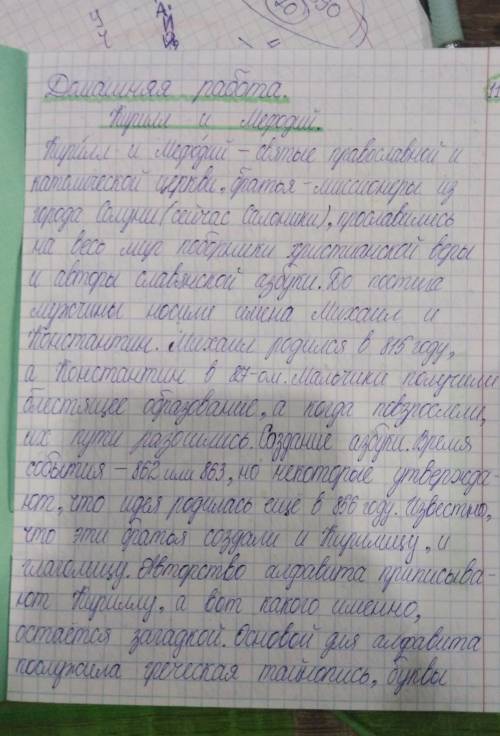 Домашняя работа.
Кирилл и Мефодий.
Кирилл и Мефодий – святые православной и
католической церкви, братья-миссионеры из
города Солуни (сейчас Салоники), прославились
на весь мир поборники христианской веры
и авторы славянской азбуки. До пострига
мужчины носили имена Михаил и
Константин. Михаил родился в 815 году,
а Константин в 27-ом. Мальчики получили
блестящее образование, а когда повзрослели,
их пути разошлись. Создание азбуки. Время
события – 862 или 863, но некоторые утвержда-
ют, что идея родилась ещё в 856 году. Известно,
что эти братья создали и Кирилицу, и
глаголицу. Авторство алфавита приписыва-
ют Кириллу, а вот какого именно,
остаётся загадкой. Основой для алфавита
послужила греческая тайнопись, буквы
11